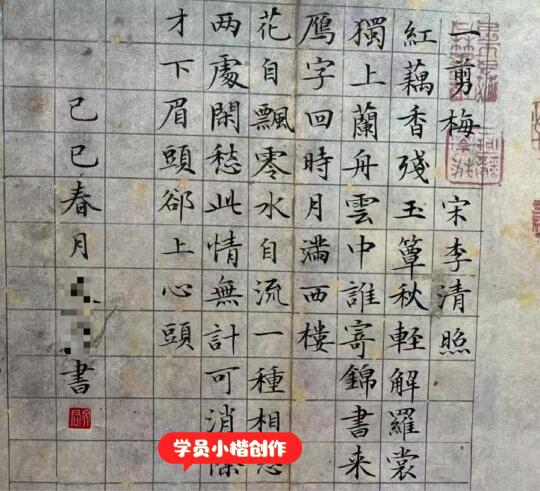 一剪梅 宋李清照
紅藕香殘玉簟秋輕解羅裳
獨上蘭舟雲中誰寄錦書来
鴈字回時月滿西樓
花自飄零水自流一種相思
两處閑愁此情無計可消除
才下眉頭郤上心頭
己巳春月書
学员小楷创作